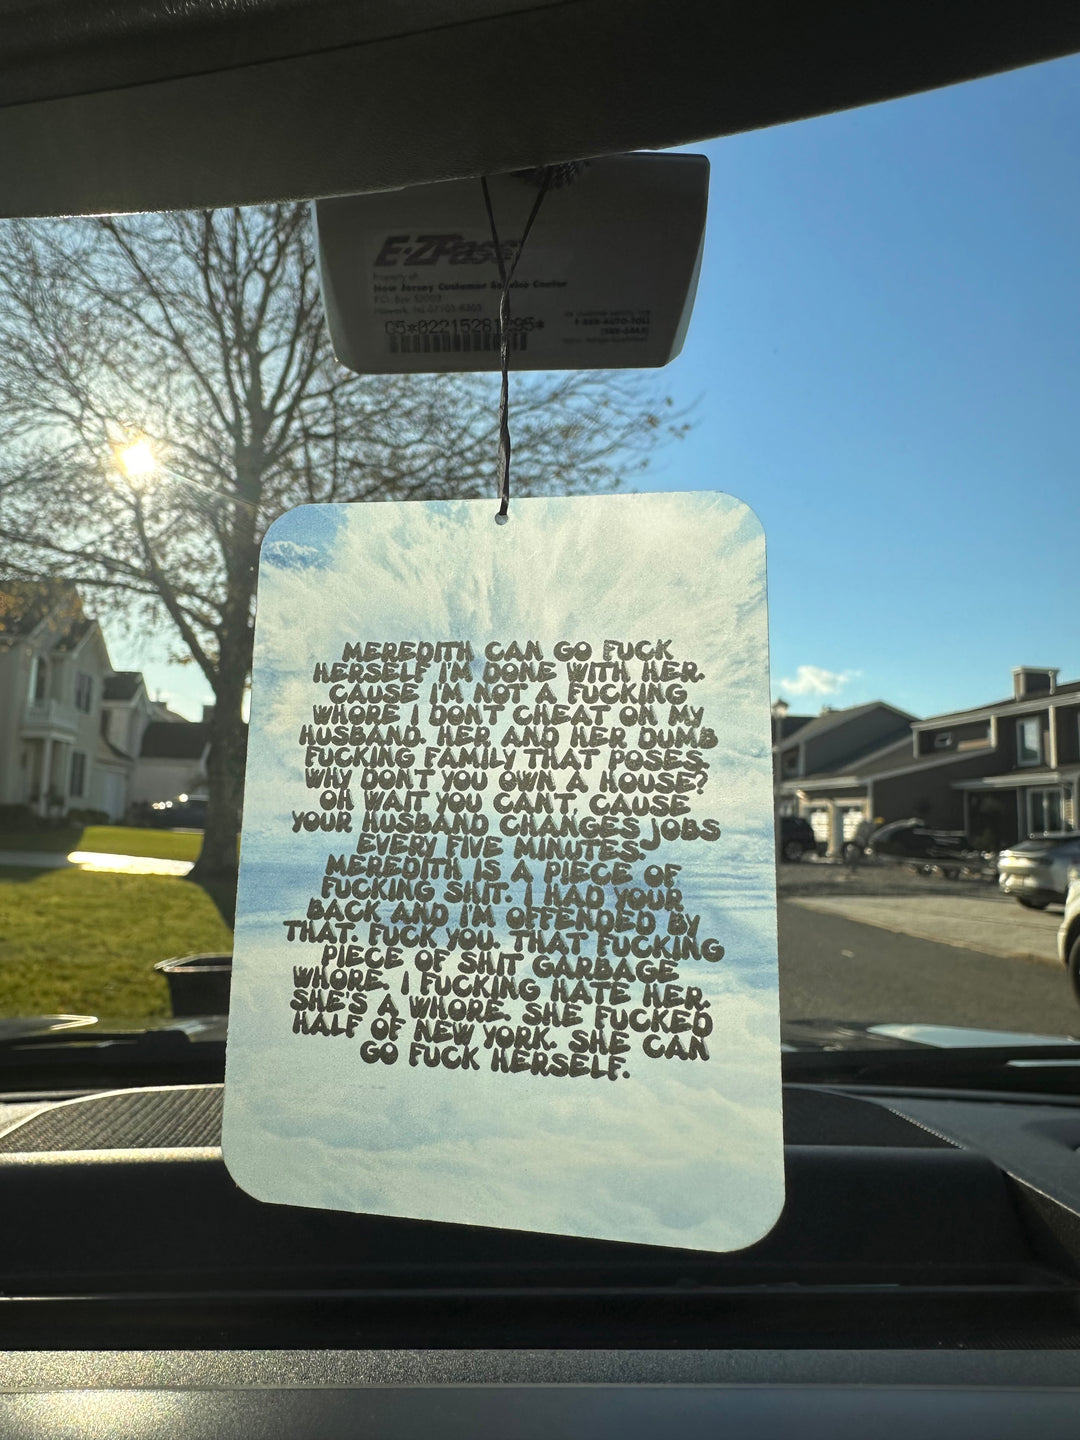 E-ZPass
Property of:
New Jersey Customer Service Center
P.O. Box 52003
Newark, NJ 07101-8203
1-888-AUTO-TOLL
MEREDITH CAN GO FUCK
HERSELF I'M DONE WITH HER.
CAUSE I'M NOT A FUCKING
WHORE I DON'T CHEAT ON MY
HUSBAND. HER AND HER DUMB
FUCKING FAMILY THAT POSES.
WHY DON'T YOU OWN A HOUSE?
OH WAIT YOU CAN'T, CAUSE
YOUR HUSBAND CHANGES JOBS
EVERY FIVE MINUTES.
MEREDITH IS A PIECE OF
FUCKING SHIT. I HAD YOUR
BACK AND I'M OFFENDED BY
THAT. FUCK YOU. THAT FUCKING
PIECE OF SHIT GARBAGE
WHORE. I FUCKING HATE HER.
SHE'S A WHORE. SHE FUCKED
HALF OF NEW YORK. SHE CAN
GO FUCK HERSELF.